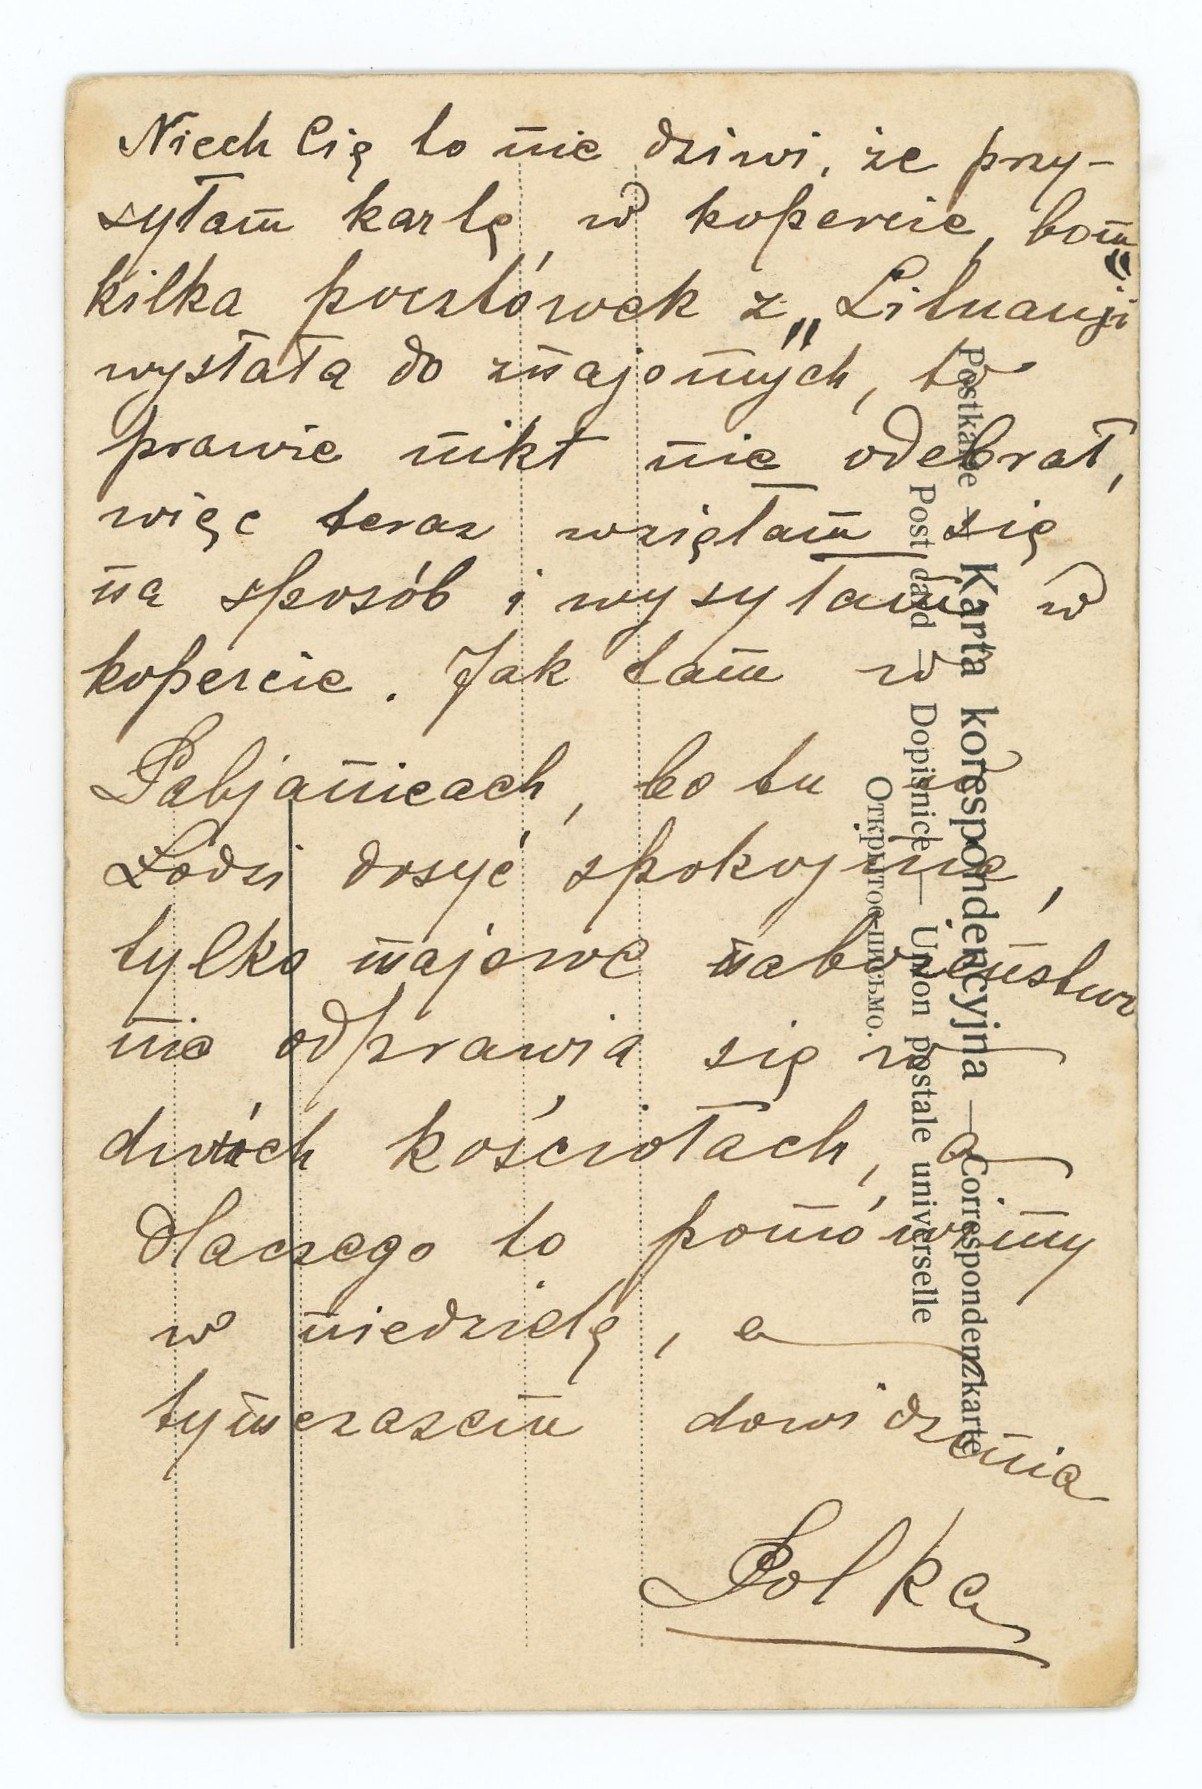 Niech Cię to nie dziwi, że przy-
syłam kartę w kopercie, bom
kilka pocztówek z „Lituanji”
wysłała do znajomych, to
prawie nikt nie odebrał,
więc teraz wzięłam się
na sposób i wysyłam w
kopercie. Jak tam w
Pabjanicach, bo tu w
Łodzi dosyć spokojnie,
tylko majowe nabożeństwo
nie odprawia się w
dwóch kościołach, a
dlaczego to pomówimy
w niedzielę, a
tymczasem dowidzenia
Polka
Postkarte — Karta korespondencyjna — Correspondenzkarte
Post card — Dopisnice — Union postale universelle
Открытое письмо.